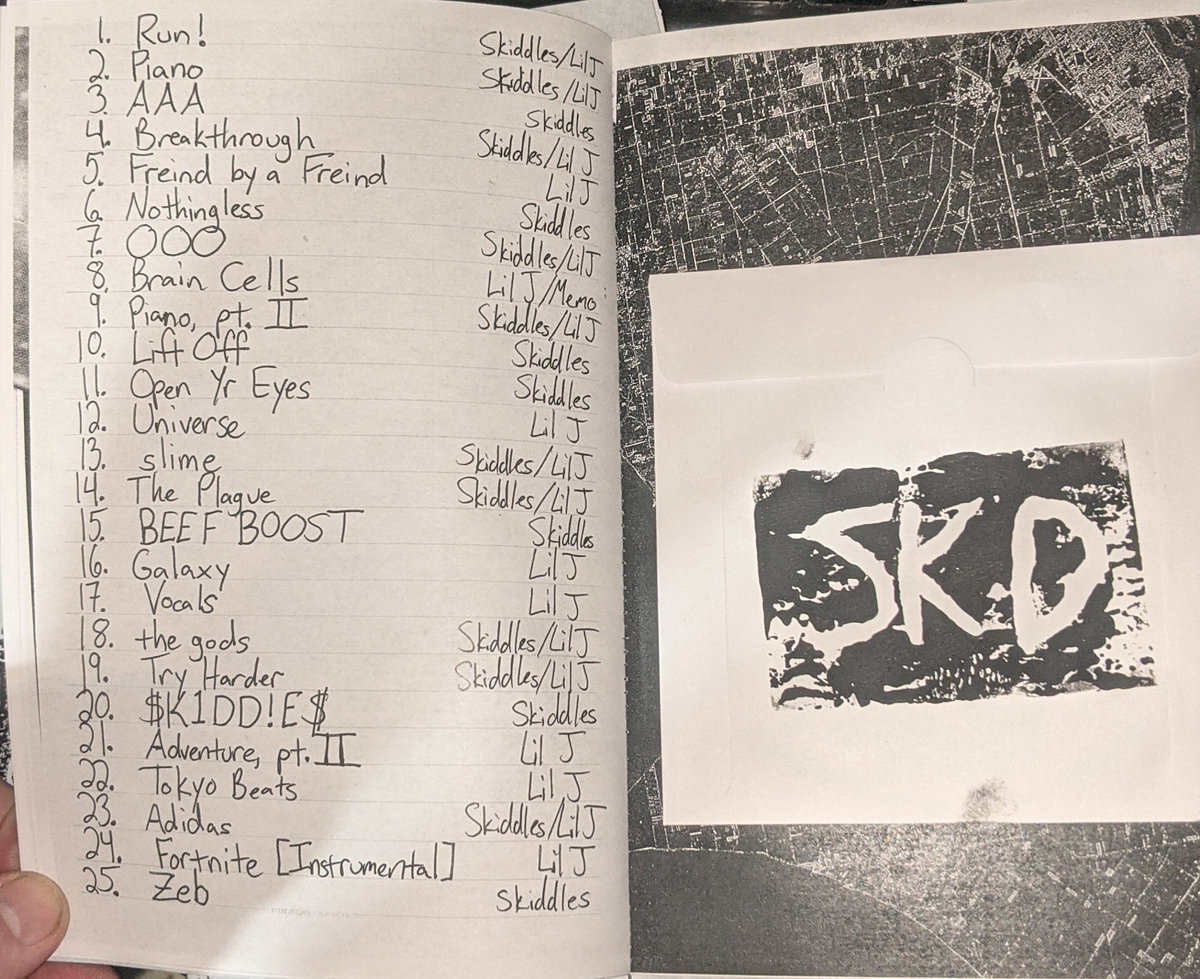 1. Run! Skiddles/Lil J
2. Piano Skiddles/Lil J
3. AAA Skiddles
4. Breakthrough Skiddles/Lil J
5. Freind by a Freind Lil J
6. Nothingless Skiddles
7. OOO Skiddles/Lil J
8. Brain Cells Lil J/Memo
9. Piano, pt. II Skiddles/Lil J
10. Lift Off Skiddles
11. Open Yr Eyes Skiddles
12. Universe Lil J
13. slime Skiddles/Lil J
14. The Plague Skiddles/Lil J
15. BEEF BOOST Skiddles
16. Galaxy Lil J
17. Vocals Lil J
18. the gods Skiddles/Lil J
19. Try Harder Skiddles/Lil J
20. $K1DD!E$ Skiddles
21. Adventure, pt. II Lil J
22. Tokyo Beats Lil J
23. Adidas Skiddles/Lil J
24. Fortnite [Instrumental] Lil J
25. Zeb Skiddles
SKD